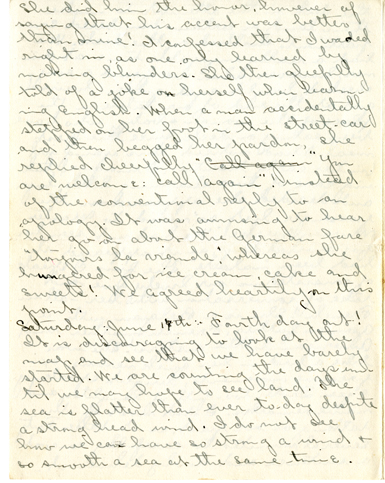 She did him the honor, however of
saying that his accent was better
than mine! I confessed that I waded
right in, as one only learned by
making blunders. She then gleefully
told of a joke on herself when learn-
ing English. When a man accidentally
stepped on her foot in the street-car
and then begged her pardon, she
replied cheerfully "Call again" "You
are welcome: call again". Instead
of the conventional reply to an
apology. It was amusing to hear
her go on about the German fare
"Toujours la viande", whereas she
hungered for ice cream, cake and
sweets! We agreed heartily on this
point.
Saturday, June 17th:- Fourth day out!
It is discouraging to look at the
map and see that we have barely
started. We are counting the days un-
til we may hope to see land. The
sea is flatter than ever to-day despite
a strong head wind. I do not see
how we can have so strong a wind &
so smooth a sea at the same time.